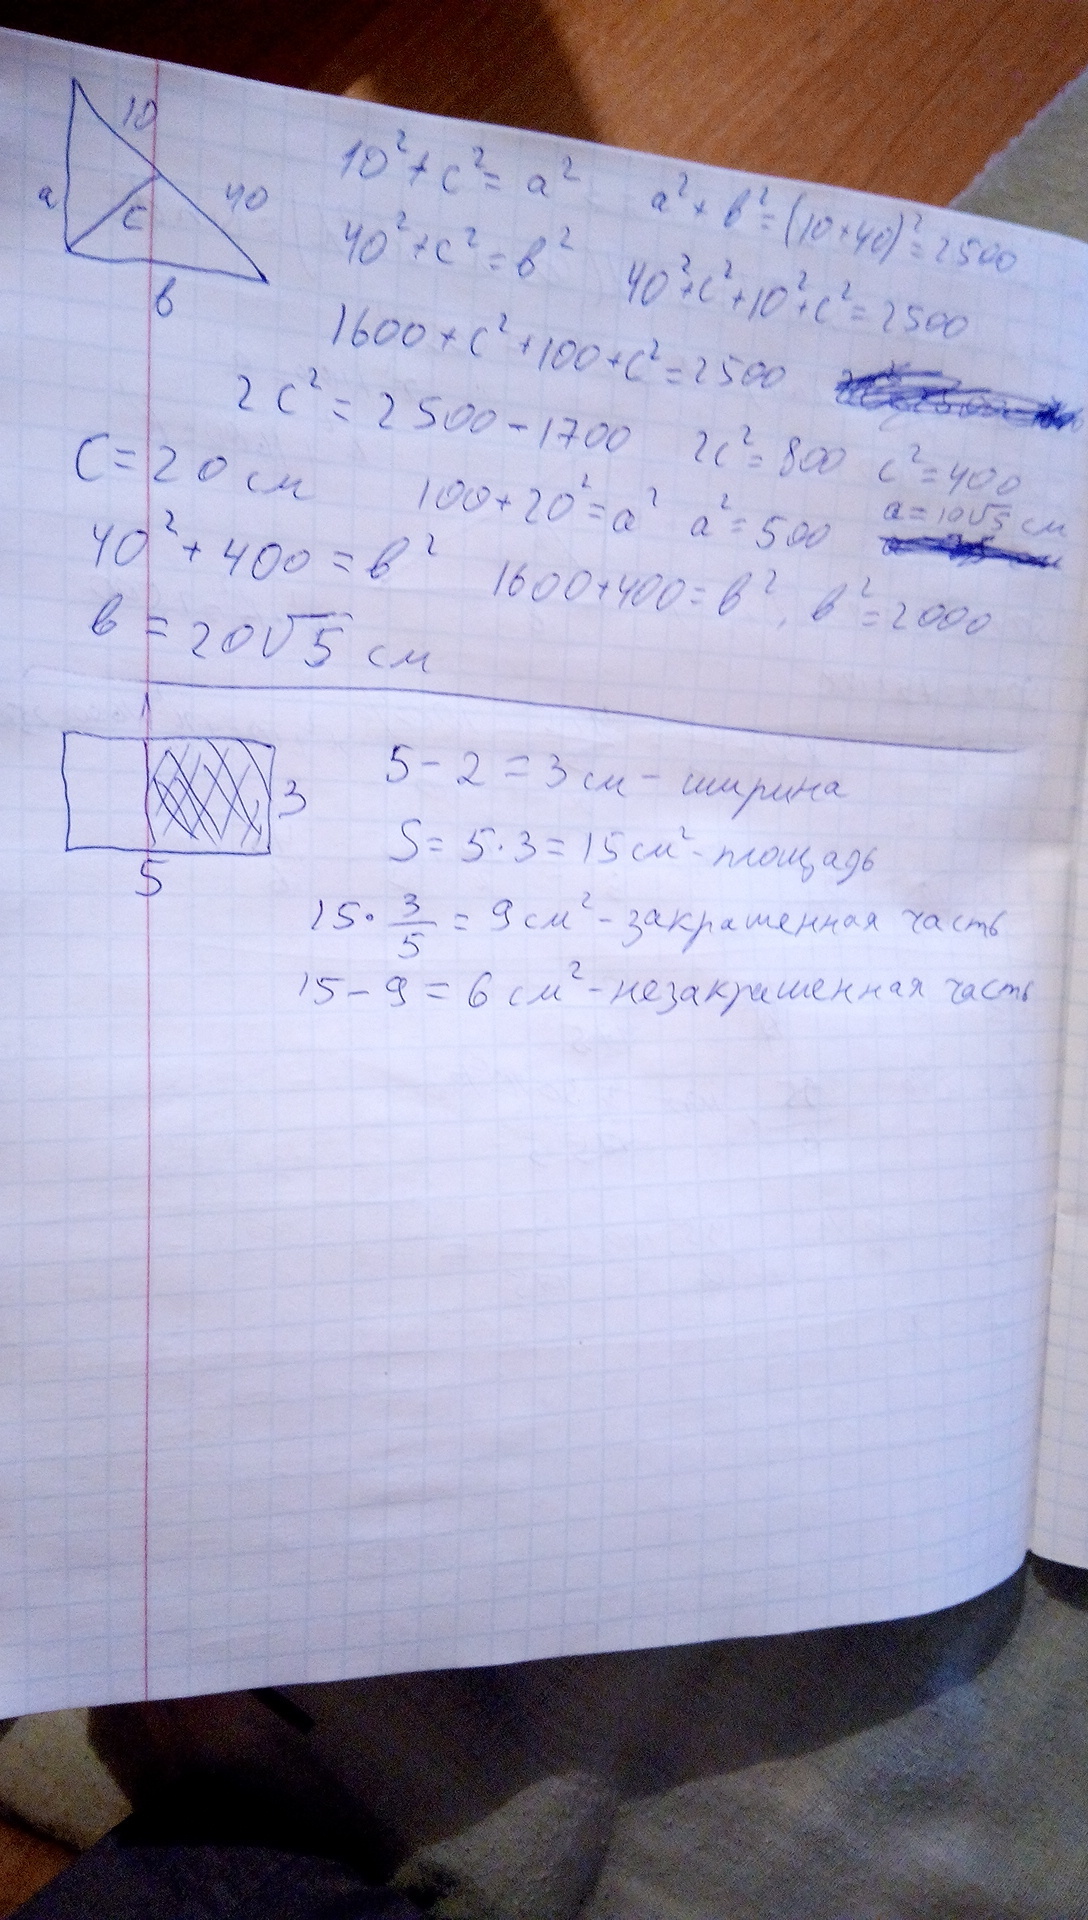 10
a
c
40
в
10² + c² = a² a² + в² = (10+40)² = 2500
40² + c² = в² 40²+c²+10²+c² = 2500
1600 + c² + 100 + c² = 2500
2c² = 2500 - 1700 2c² = 800 c² = 400
C = 20 см 100 + 20² = a² a² = 500 a = 10√5 см
40² + 400 = в² 1600+400 = в², в² = 2000
в = 20√5 см
3
5
5 - 2 = 3 см - ширина
S = 5·3 = 15 см² - площадь
15 · 3/5 = 9 см² - закрашенная часть
15 - 9 = 6 см² - незакрашенная часть